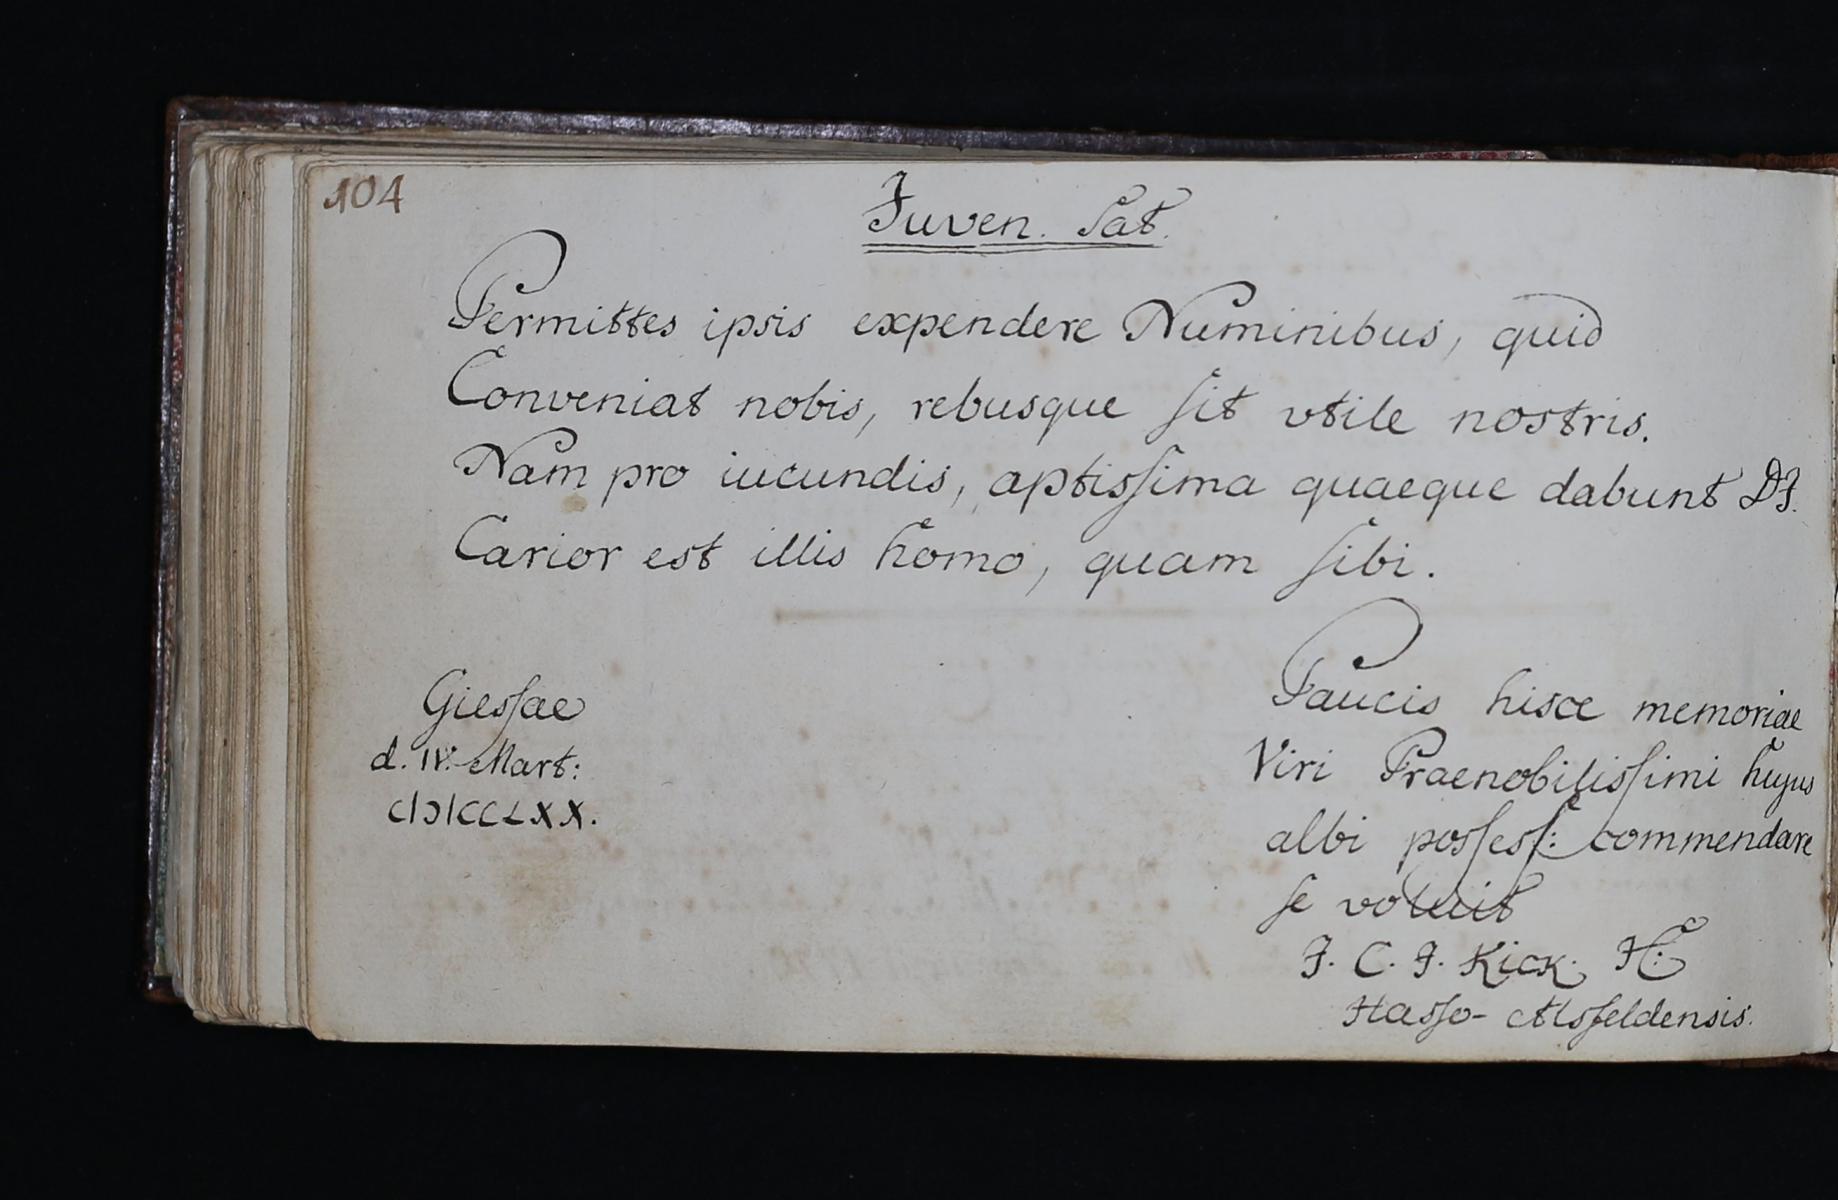 104
Juven. Sat.
Permittes ipsis expendere Numinibus, quid
Conveniat nobis, rebusque sit vtile nostris.
Nam pro iucundis, aptissima quaeque dabunt DI.
Carior est illis homo, quam sibi.
Giessae
d. IV. Mart:
CIƆIƆCCLXX.
Paucis hisce memoriae
Viri Praenobilissimi hujus
albi possess: commendare
se voluit
J. C. J. Kick.
Hasso-Alsfeldensis.